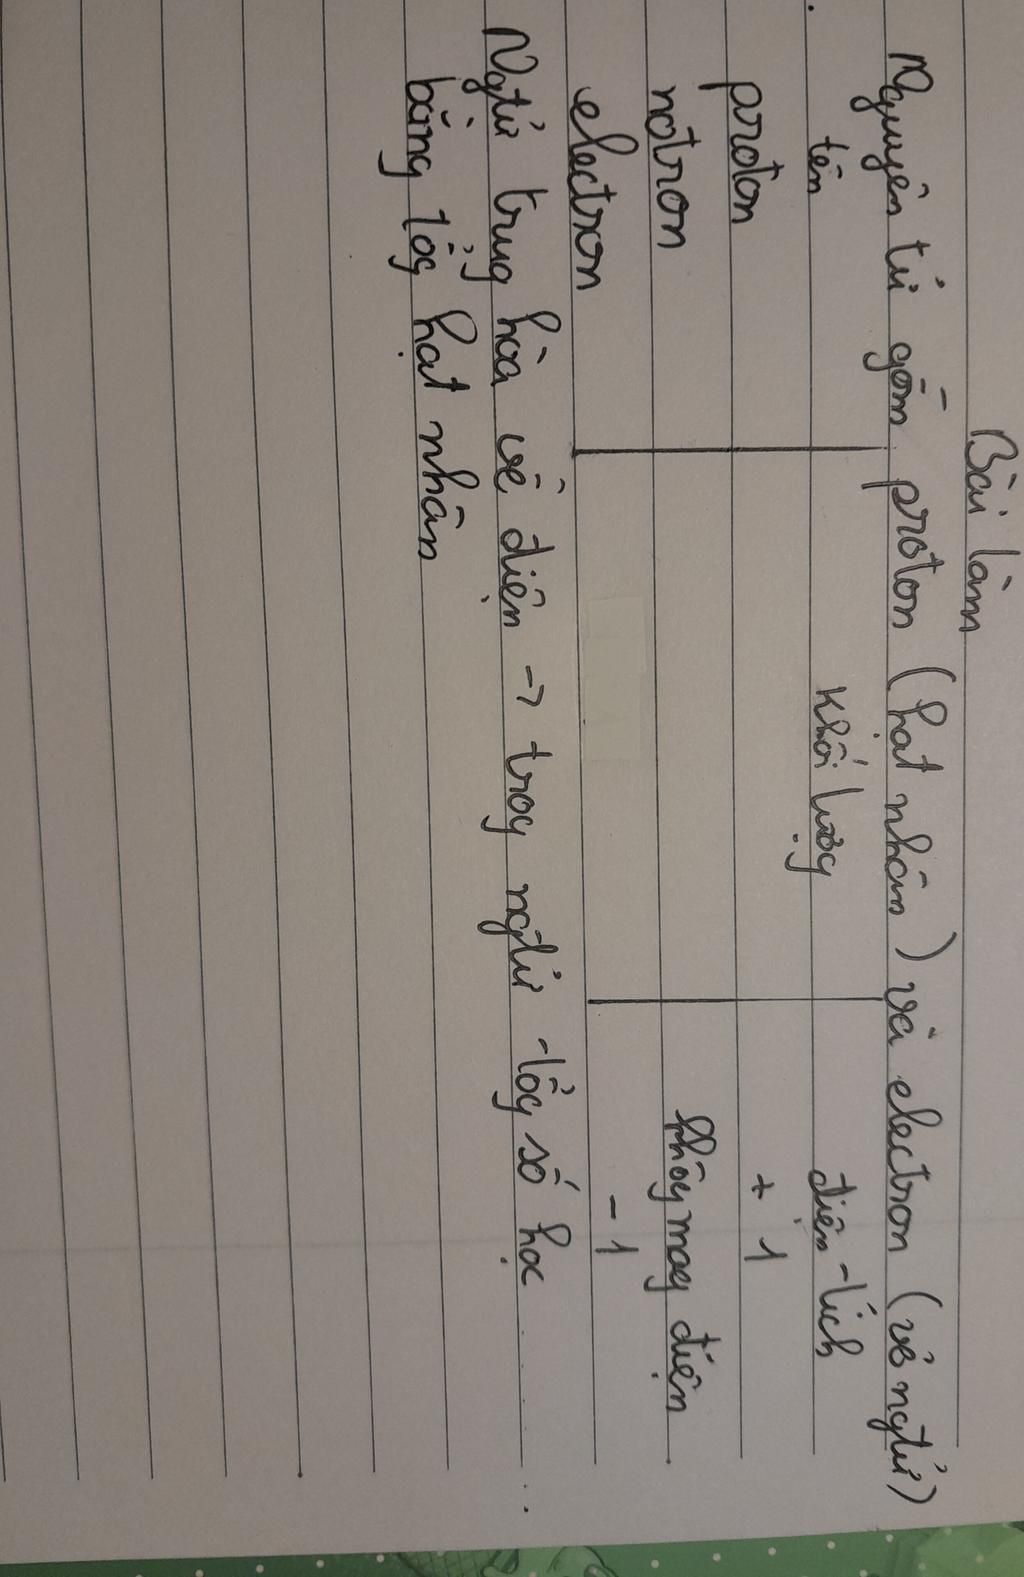 Bài làm
Nguyên tử gồm proton (hạt nhân) và electron (vỏ ngtử)
tên khối lượg điện tích
proton + 1
nơtron khôg mag điện
electron - 1
Ngtử trug hòa về điện → trog ngtử tổg số hạt
bằng tổg hạt nhân